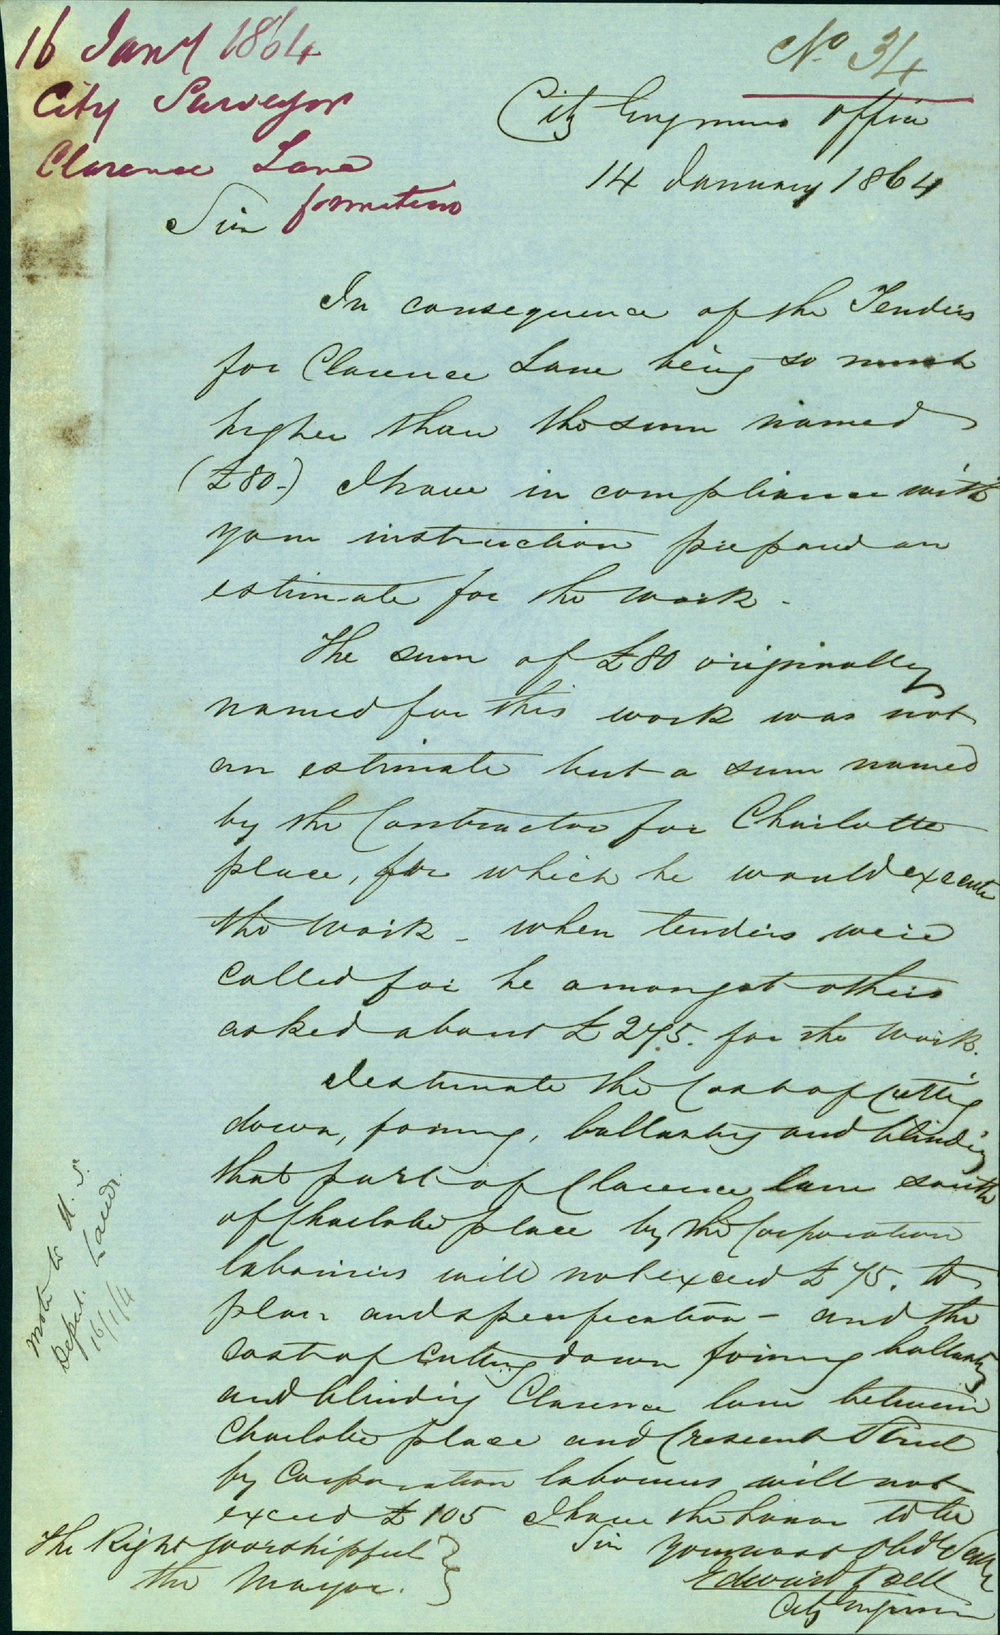 16 Jany 1864
City Surveyor
Clarence Lane
formation
No. 34
City Engineers Office
14 January 1864
Sir
In consequence of the Tenders
for Clarence Lane being so much
higher than the sum named
(£80.-) I have in compliance with
your instruction prepared an
estimate for the work -
The sum of £80 originally
named for this work was not
an estimate but a sum named
by the Contractor for Charlotte
place, for which he would execute
the work - when tenders were
called for he amongst others
asked about £275. for the work.
I estimate the Cost of Cutting
down, forming, ballasting and blinding
that part of Clarence lane south
of Charlotte place by the Corporation
labourers will not exceed £75. to
plan and specification - and the
cost of cutting down forming ballasting
and blinding Clarence lane between
Charlotte place and Crescent Street
by Corporation labourers will not
exceed £105 I have the honor to be
Sir Your most Obdt Servt
Edward Bell
City Engineer
The Right Worshipful
the Mayor.
Note to
Depst. Lands.
16/1/4